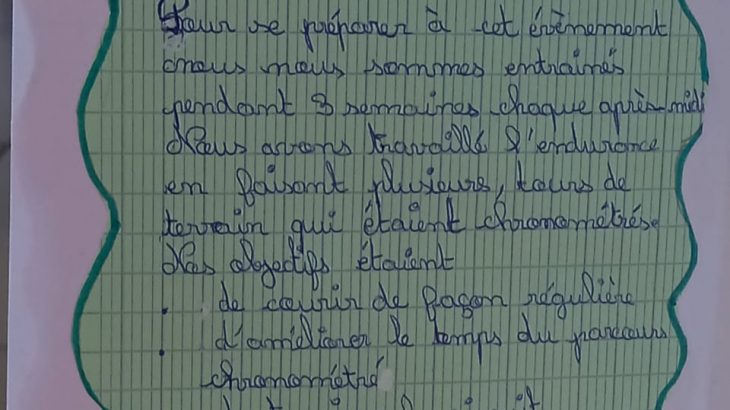 Pour se préparer à cet évènement
nous nous sommes entrainés
pendant 3 semaines chaque après-midi
Nous avons travaillé l'endurance
en faisant plusieurs, tours de
terrain qui étaient chronométrés.
Nos objectifs étaient
. de courir de façon régulière
. d'améliorer le temps du parcours
chronométré